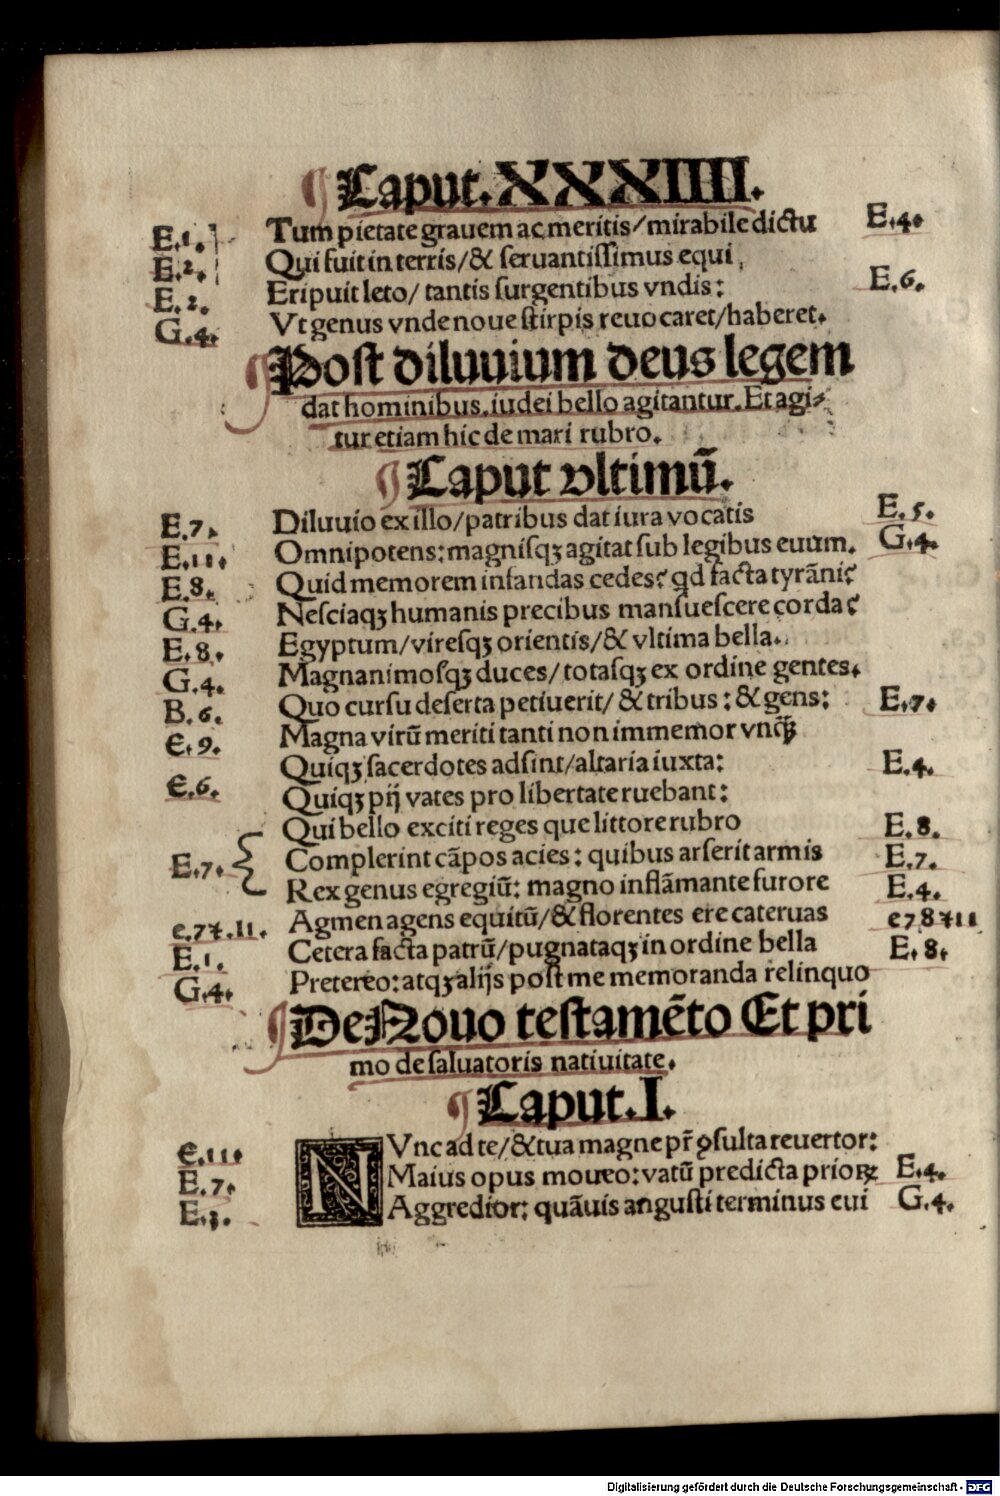 ¶ Caput. XXXIIII.
E.1. Tum pietate grauem ac meritis/mirabile dictu E.4.
E.2. Qui fuit in terris/& seruantissimus equi
E.2. Eripuit leto/ tantis surgentibus vndis: E.6.
G.4. Vt genus vnde noue stirpis reuocaret/haberet.
¶ Post diluuium deus legem
dat hominibus. iudei bello agitantur. Et agi⸗
tur etiam hic de mari rubro.
¶ Caput vltimū.
E.7. Diluuio ex illo/patribus dat iura vocatis E.5.
E.11. Omnipotens: magnisqꝫ agitat sub legibus euum. G.4.
E.8. Quid memorem infandas cedes? qd facta tyrāni?
G.4. Nesciaqꝫ humanis precibus mansuescere corda?
E.8. Egyptum/viresqꝫ orientis/& vltima bella.
G.4. Magnanimosqꝫ duces/totasqꝫ ex ordine gentes.
B.6. Quo cursu deserta petiuerit/ & tribus: & gens: E.7.
E.9. Magna virū meriti tanti non immemor vnqꝫ̄
Quiqꝫ sacerdotes adsint/altaria iuxta: E.4.
E.6. Quiqꝫ pij vates pro libertate ruebant:
Qui bello exciti reges que littore rubro E.8.
E.7. Complerint cāpos acies: quibus arserit armis E.7.
Rex genus egregiū: magno inflāmante furore E.4.
e.7⁊.11. Agmen agens equitū/& florentes ere cateruas e78⁊11
E.1. Cetera facta patrū/pugnataqꝫ in ordine bella E.8.
G.4. Pretereo: atqꝫ alijs post me memoranda relinquo
¶ De Nouo testamēto Et pri
mo de saluatoris natiuitate.
¶ Caput. I.
E.11. NVnc ad te/& tua magne pr̄ ꝯsulta reuertor:
E.7. Maius opus moueo: vatū predicta prioꝝ E.4.
E.3. Aggredior: quāuis angusti terminus eui G.4.
Digitalisierung gefördert durch die Deutsche Forschungsgemeinschaft - DFG